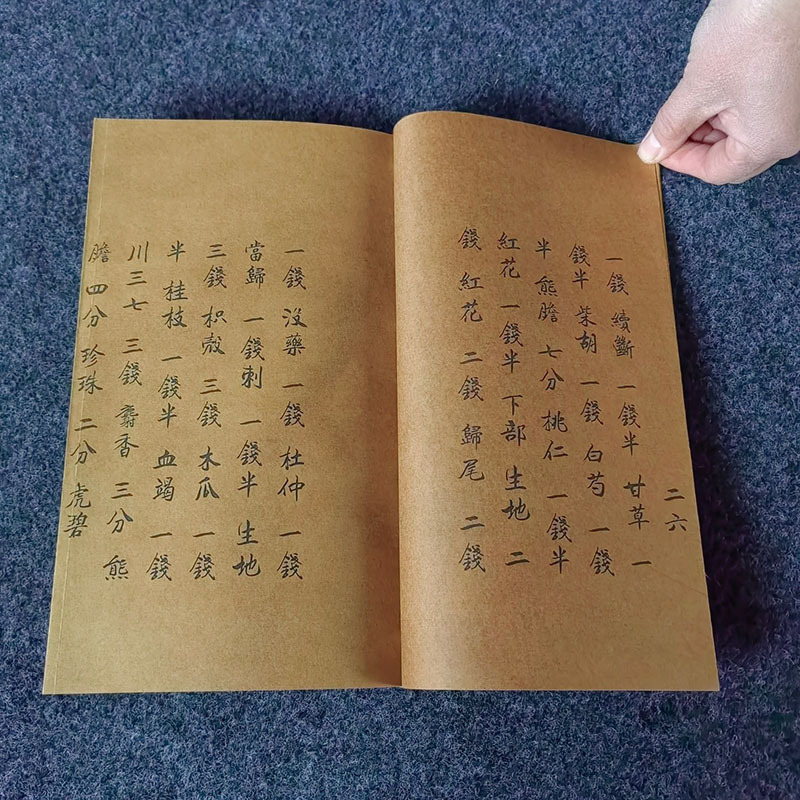 二六
一錢 續斷 一錢半 甘草 一
錢半 柴胡 一錢 白芍 一錢
半 熊膽 七分 桃仁 一錢半
紅花 一錢半 下部 生地 二
錢 紅花 二錢 歸尾 二錢
一錢 沒藥 一錢 杜仲 一錢
當歸 一錢刺 一錢半 生地
三錢 枳殼 三錢 木瓜 一錢
半 桂枝 一錢半 血竭 一錢
川三七 三錢 麝香 三分 熊
膽 四分 珍珠 二分 虎碧